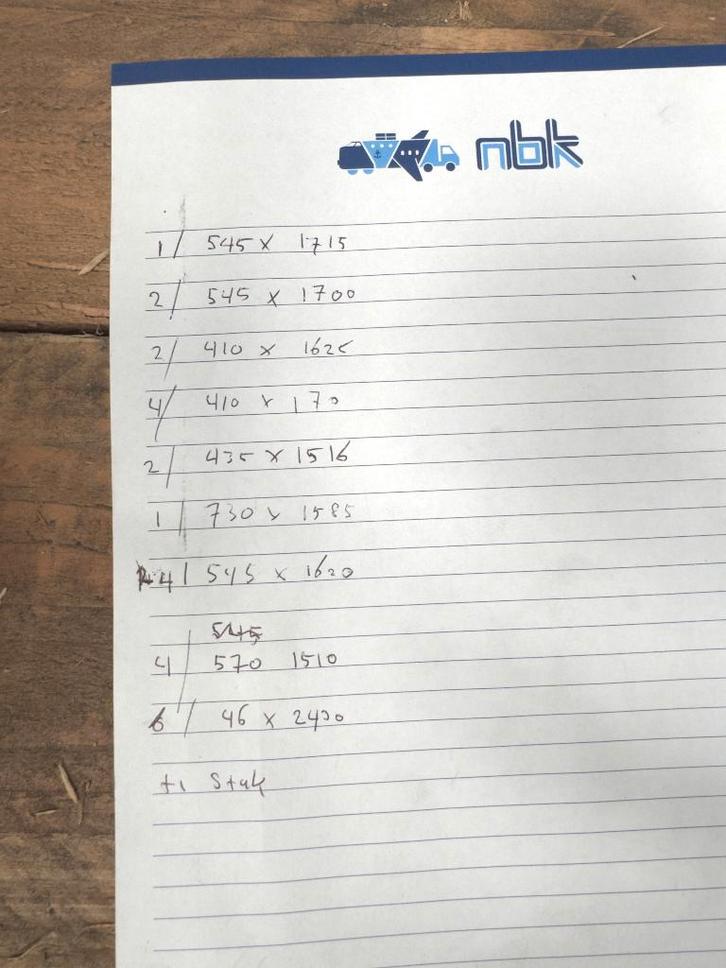 nbk
1/ 545 x 1715
2/ 545 x 1700
2/ 410 x 1625
4/ 410 x 170
2/ 435 x 1516
1/ 730 x 1585
4/ 545 x 1620
545
4/ 570 1510
6/ 46 x 2430
+1 Stuk